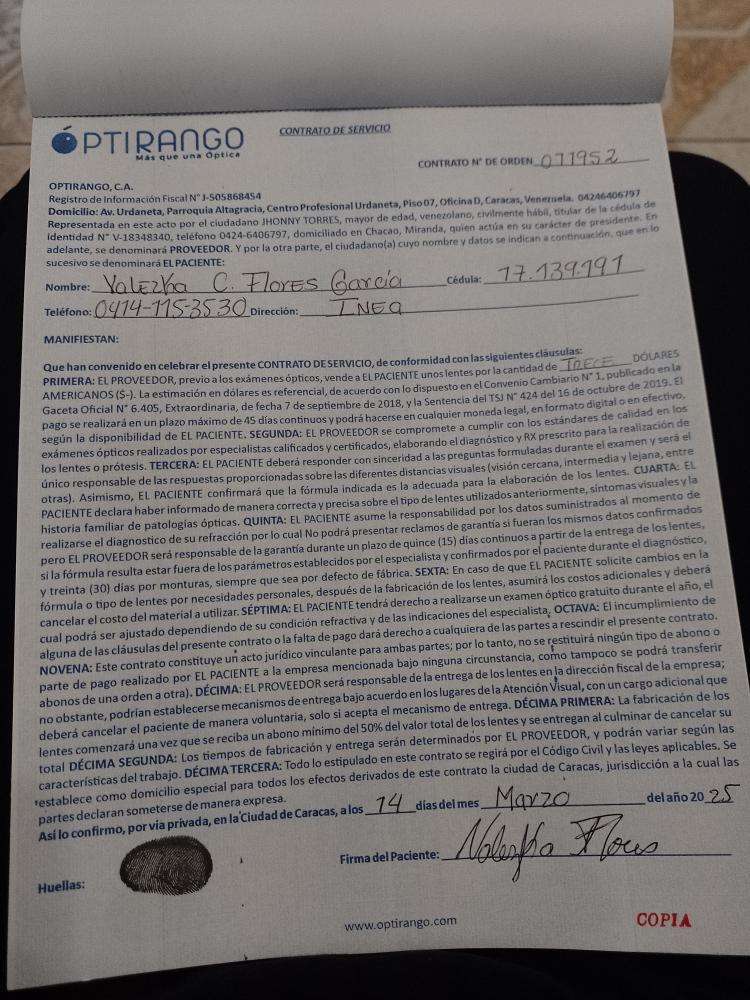 ÓPTIRANGO
Más que una Óptica
CONTRATO DE SERVICIO
CONTRATO N° DE ORDEN 071952
OPTIRANGO, C.A.
Registro de Información Fiscal N° J-505868454
Domicilio: Av. Urdaneta, Parroquia Altagracia, Centro Profesional Urdaneta, Piso 07, Oficina D, Caracas, Venezuela. 04246406797
Representada en este acto por el ciudadano JHONNY TORRES, mayor de edad, venezolano, civilmente hábil, titular de la cédula de
identidad N° V-18348340, teléfono 0424-6406797, domiciliado en Chacao, Miranda, quien actúa en su carácter de presidente. En
adelante, se denominará PROVEEDOR. Y por la otra parte, el ciudadano(a) cuyo nombre y datos se indican a continuación, que en lo
sucesivo se denominará EL PACIENTE:
Nombre: Valezka C. Flores García Cédula: 17.139.191
Teléfono: 0414-115-3530 Dirección: INEA
MANIFIESTAN:
Que han convenido en celebrar el presente CONTRATO DE SERVICIO, de conformidad con las siguientes cláusulas:
PRIMERA: EL PROVEEDOR, previo a los exámenes ópticos, vende a EL PACIENTE unos lentes por la cantidad de TRECE DÓLARES
AMERICANOS ($-). La estimación en dólares es referencial, de acuerdo con lo dispuesto en el Convenio Cambiario N° 1, publicado en la
Gaceta Oficial N° 6.405, Extraordinaria, de fecha 7 de septiembre de 2018, y la Sentencia del TSJ N° 424 del 16 de octubre de 2019. El
pago se realizará en un plazo máximo de 45 días continuos y podrá hacerse en cualquier moneda legal, en formato digital o en efectivo,
según la disponibilidad de EL PACIENTE. SEGUNDA: EL PROVEEDOR se compromete a cumplir con los estándares de calidad en los
exámenes ópticos realizados por especialistas calificados y certificados, elaborando el diagnóstico y RX prescrito para la realización de
los lentes o prótesis. TERCERA: EL PACIENTE deberá responder con sinceridad a las preguntas formuladas durante el examen y será el
único responsable de las respuestas proporcionadas sobre las diferentes distancias visuales (visión cercana, intermedia y lejana, entre
otras). Asimismo, EL PACIENTE confirmará que la fórmula indicada es la adecuada para la elaboración de los lentes. CUARTA: EL
PACIENTE declara haber informado de manera correcta y precisa sobre el tipo de lentes utilizados anteriormente, síntomas visuales y la
historia familiar de patologías ópticas. QUINTA: EL PACIENTE asume la responsabilidad por los datos suministrados al momento de
realizarse el diagnostico de su refracción por lo cual No podrá presentar reclamos de garantía si fueran los mismos datos confirmados
pero EL PROVEEDOR será responsable de la garantía durante un plazo de quince (15) días continuos a partir de la entrega de los lentes,
si la fórmula resulta estar fuera de los parámetros establecidos por el especialista y confirmados por el paciente durante el diagnóstico,
y treinta (30) días por monturas, siempre que sea por defecto de fábrica. SEXTA: En caso de que EL PACIENTE solicite cambios en la
fórmula o tipo de lentes por necesidades personales, después de la fabricación de los lentes, asumirá los costos adicionales y deberá
cancelar el costo del material a utilizar. SÉPTIMA: EL PACIENTE tendrá derecho a realizarse un examen óptico gratuito durante el año, el
cual podrá ser ajustado dependiendo de su condición refractiva y de las indicaciones del especialista. OCTAVA: El incumplimiento de
alguna de las cláusulas del presente contrato o la falta de pago dará derecho a cualquiera de las partes a rescindir el presente contrato.
NOVENA: Este contrato constituye un acto jurídico vinculante para ambas partes; por lo tanto, no se restituirá ningún tipo de abono o
parte de pago realizado por EL PACIENTE a la empresa mencionada bajo ninguna circunstancia, como tampoco se podrá transferir
abonos de una orden a otra). DÉCIMA: EL PROVEEDOR será responsable de la entrega de los lentes en la dirección fiscal de la empresa;
no obstante, podrían establecerse mecanismos de entrega bajo acuerdo en los lugares de la Atención Visual, con un cargo adicional que
deberá cancelar el paciente de manera voluntaria, solo si acepta el mecanismo de entrega. DÉCIMA PRIMERA: La fabricación de los
lentes comenzará una vez que se reciba un abono mínimo del 50% del valor total de los lentes y se entregan al culminar de cancelar su
total DÉCIMA SEGUNDA: Los tiempos de fabricación y entrega serán determinados por EL PROVEEDOR, y podrán variar según las
características del trabajo. DÉCIMA TERCERA: Todo lo estipulado en este contrato se regirá por el Código Civil y las leyes aplicables. Se
establece como domicilio especial para todos los efectos derivados de este contrato la ciudad de Caracas, jurisdicción a la cual las
partes declaran someterse de manera expresa.
Así lo confirmo, por vía privada, en la Ciudad de Caracas, a los 14 días del mes Marzo del año 2025
Firma del Paciente: Valezka Flores
Huellas:
www.optirango.com
COPIA